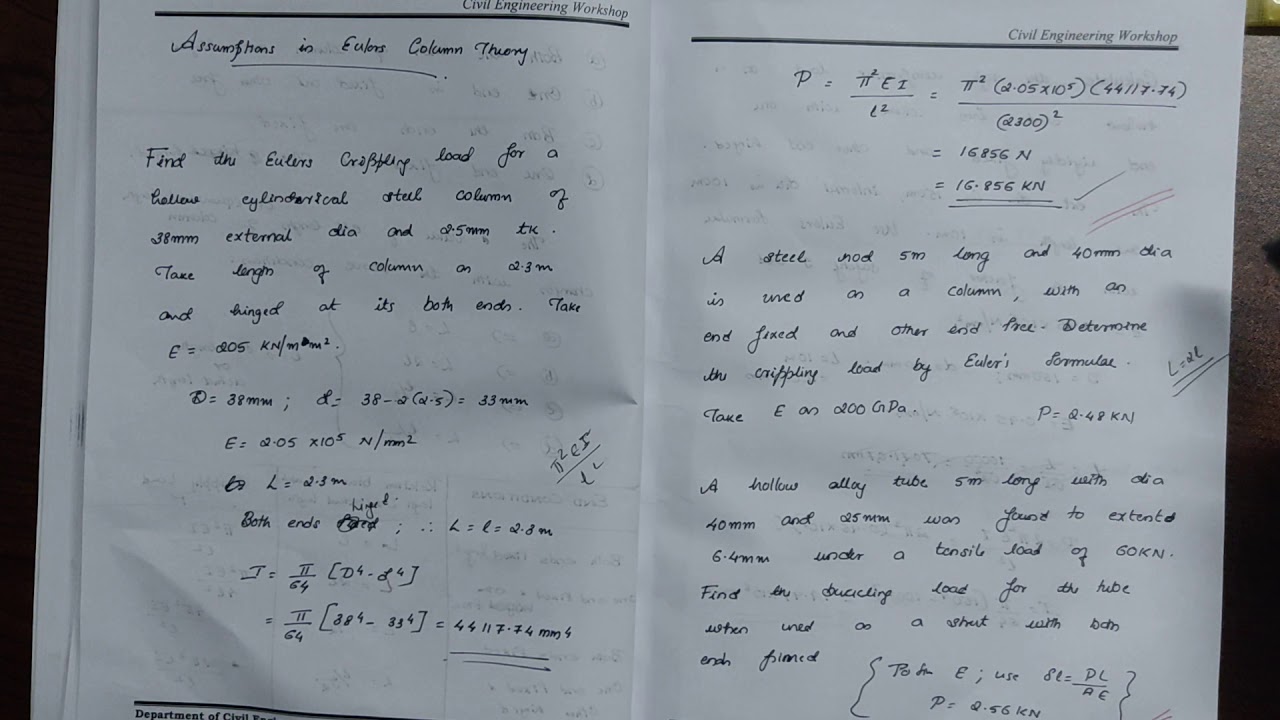 Civil Engineering Workshop
Assumptions in Eulers Column Theory
Find the Eulers Crippling load for a
hollow cylinderical steel column of
38mm external dia and 2.5mm tk.
Take length of column as 2.3m
and hinged at its both ends. Take
E = 205 KN/mm².
D = 38mm ; d = 38-2(2.5) = 33mm
E = 2.05 x10⁵ N/mm²
π²EI/l²
L = 2.3m
hinged.
Both ends ; ∴ L = l = 2.3m
I = π/64 [D⁴-d⁴]
= π/64 [38⁴ - 33⁴] = 44117.74 mm⁴
Department of Civil
Civil Engineering Workshop
P = π²EI/l² = π² (2.05x10⁵) (44117.74)/(2300)²
= 16856 N
= 16.856 KN
A steel rod 5m long and 40mm dia
is used as a column, with an
end fixed and other end free. Determine
the crippling load by Euler's formulae.
L=2l
Take E as 200 GPa. P = 2.48 KN
A hollow alloy tube 5m long with dia
40mm and 25mm was found to extend
6.4mm under a tensile load of 60KN.
Find the buckling load for the tube
when used as a strut with both
ends pinned
{ To fin E ; use δl = PL/AE
P = 2.56 KN }